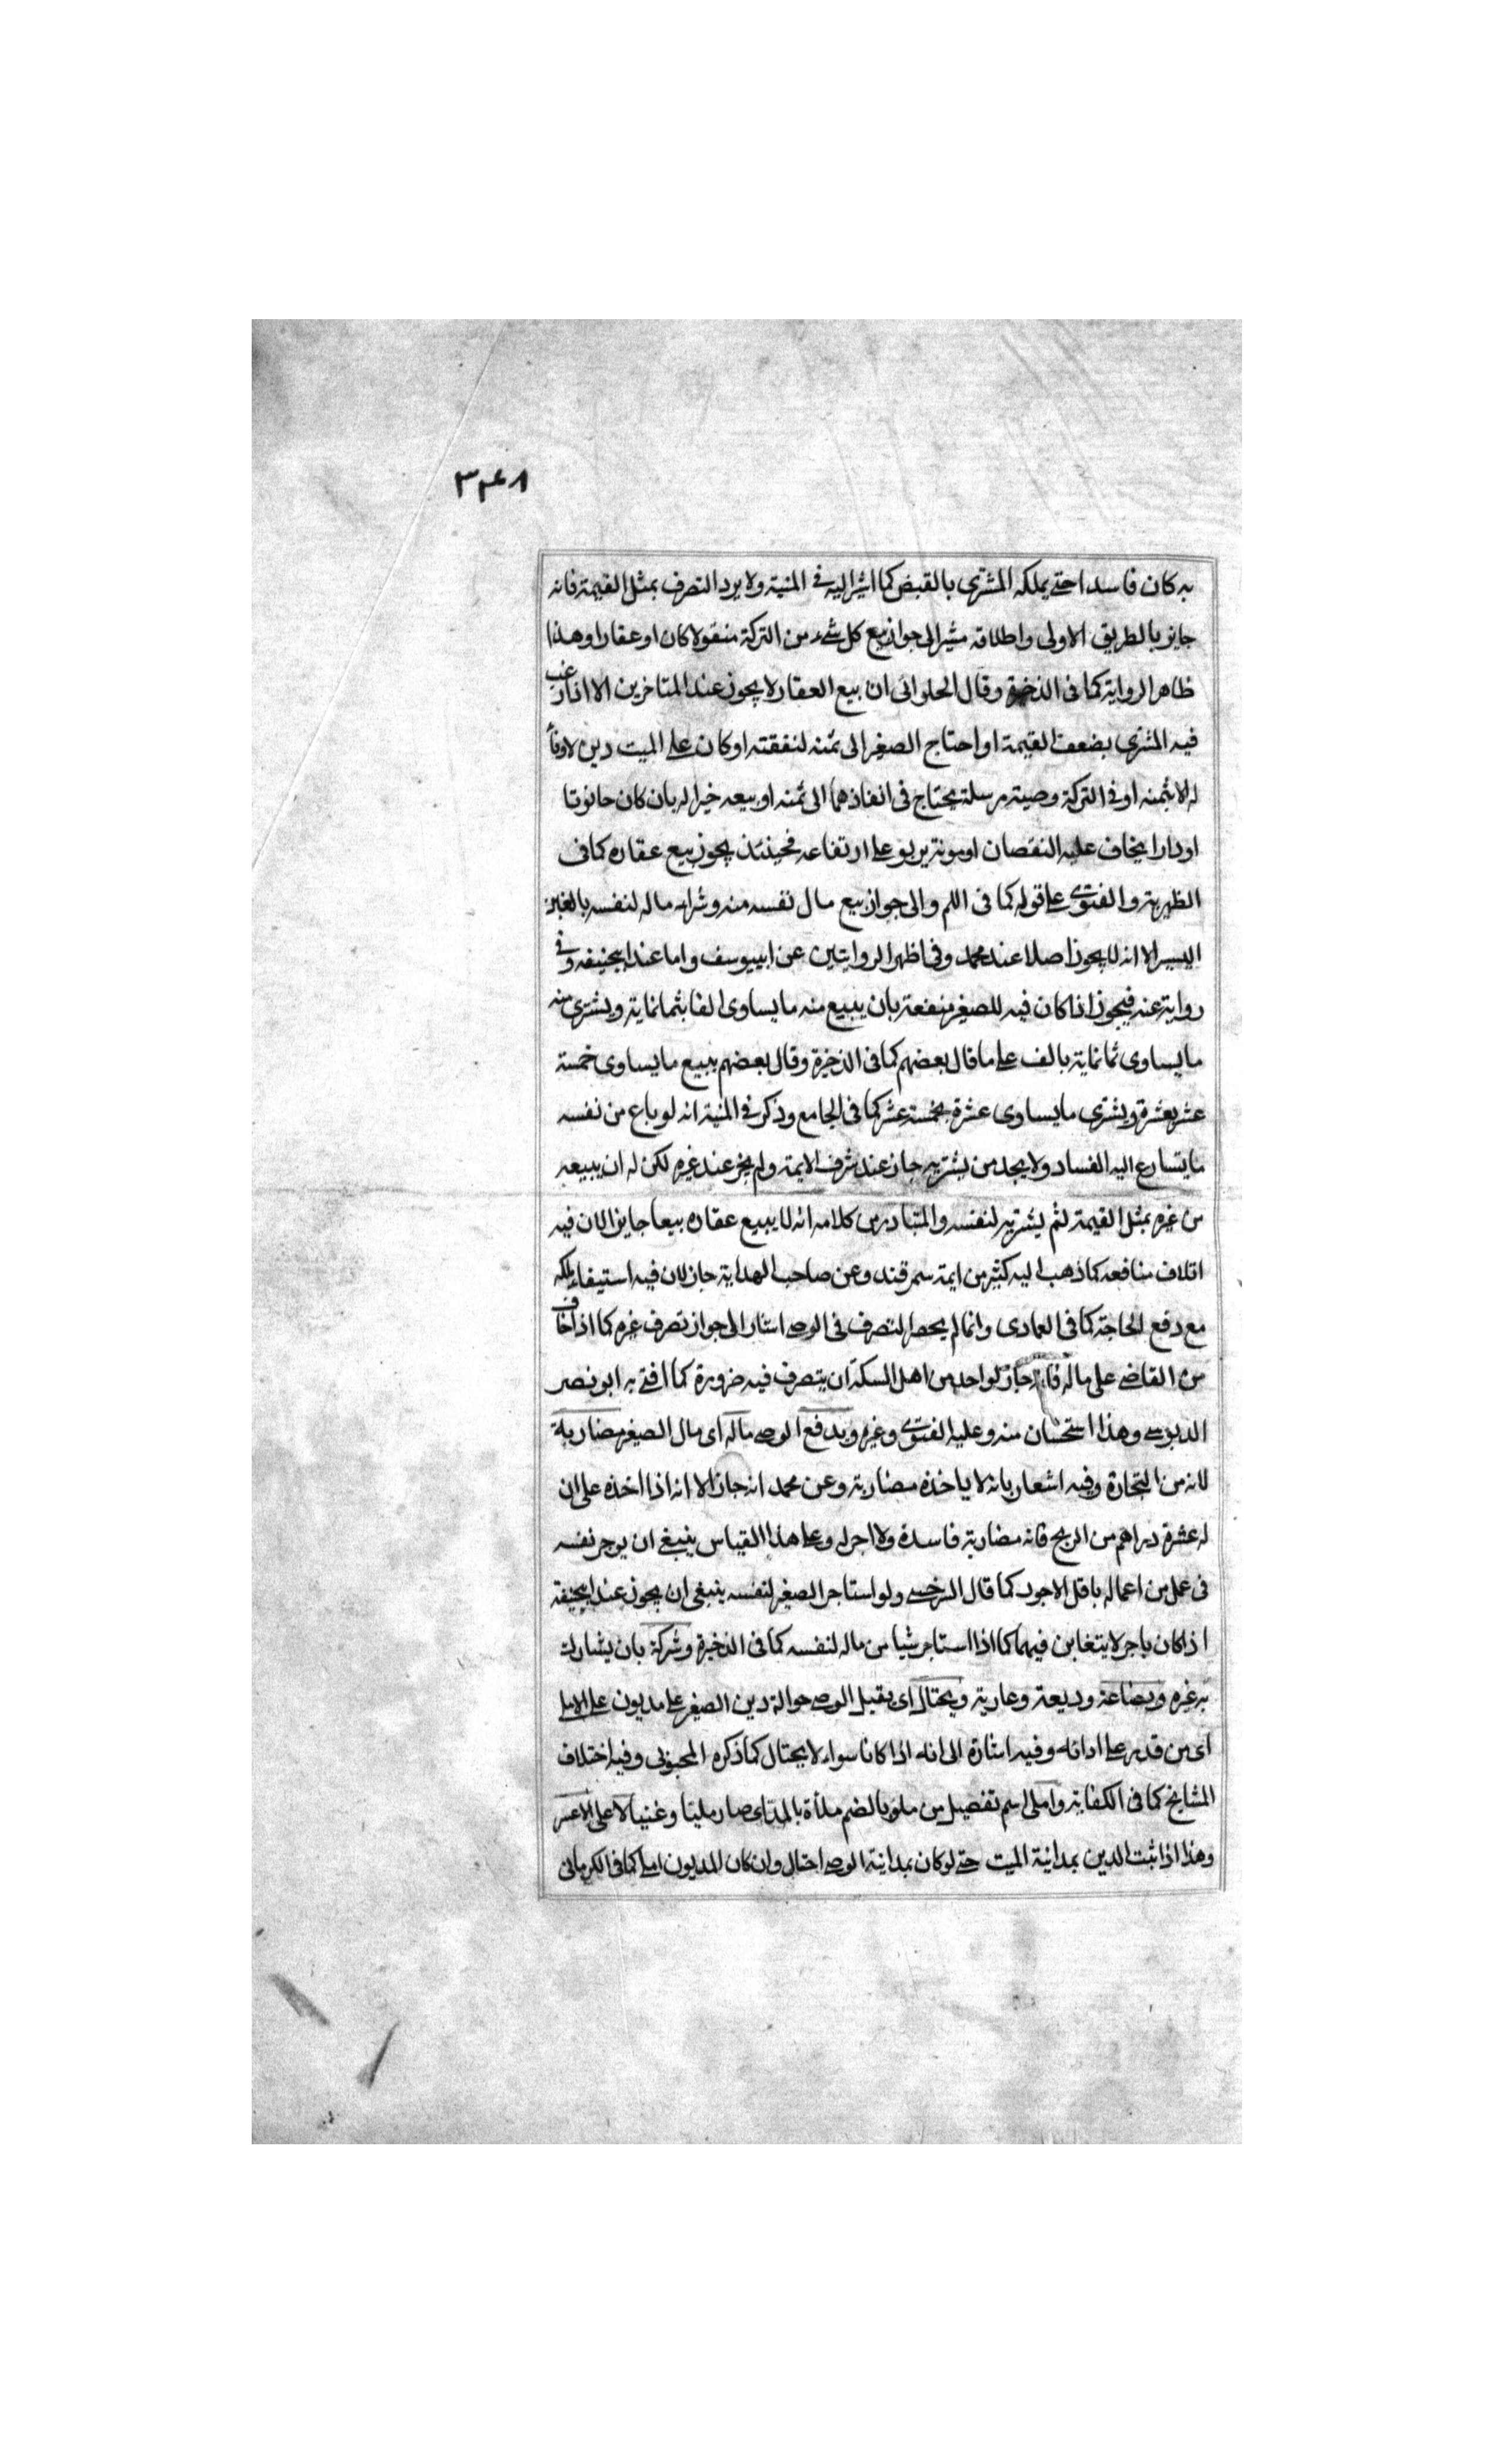 ٣٤٨
به كان فاسدا حتى يملكه المشترى بالقبض كما اشير اليه فى المنية ولا يرد التصرف بمثل القيمة فانه
جايز بالطريق الاولى واطلاقه مشير الى جواز بيع كل شىء من التركة منقولا كان او عقارا وهذا
ظاهر الرواية كما فى الذخيرة وقال الحلوائى ان بيع العقار لا يجوز عند المتاخرين الا اذا رغب
فيه المشترى بضعف القيمة او احتاج الصغير الى ثمنه لنفقته او كان على الميت دين لا وفاء
له الا بثمنه او فى التركة وصية مرسلة يحتاج فى انفاذها الى ثمنه او بيعه خير له بان كان حانوتا
او دارا يخاف عليه النقصان او مونته يربو على ارتفاعه فحينئذ يجوز بيع عقاره كما فى
الظهيرية والفتوى على قوله كما فى اللم والى جواز بيع مال نفسه منه وشرائه ماله لنفسه بالغبن
اليسير الا انه لا يجوز اصلا عند محمد وفى اظهر الروايتين عن ابييوسف واما عند ابيحنيفه وفى
رواية عنه فيجوز اذا كان فيه للصغير منفعة بان يبيع منه ما يساوى الفا بثمانماية ويشترى منه
ما يساوى ثمانماية بالف على ما قال بعضهم كما فى الذخيرة وقال بعضهم يبيع ما يساوى خمسة
عشر بعشرة ويشترى ما يساوى عشرة بخمسة عشر كما فى الجامع وذكر فى المنية انه لو باع من نفسه
ما يتسارع اليه الفساد ولا يجد من يشتريه جاز عند شرف الايمة ولم يجز عند غيره لكن له ان يبيعه
من غيره بمثل القيمة ثم يشتريه لنفسه والمتبادر من كلامه انه لا يبيع عقاره بيعا جايزا لان فيه
اتلاف منافعه كما ذهب اليه كثير من ايمة سمرقند وعن صاحب الهداية جاز لان فيه استيفاء ملكه
مع دفع الحاجة كما فى العمادى وانما لم يحصر التصرف فى الوصى اشار الى جواز تصرف غيره كما اذا خاف
من القاضى على ماله فانه جاز لواحد من اهل السكة ان يتصرف فيه ضرورة كما افتى به ابو نصر
الدبوسى وهذا استحسان منه وعليه الفتوى وغيره ويدفع الوصى ماله اى مال الصغير مضاربة
لانه من التجارة وفيه اشعار بانه لا ياخذه مضاربة وعن محمد انه جاز الا انه اذا اخذه على ان
له عشرة دراهم من الربح فانه مضاربة فاسدة ولا اجر له وعلى هذا القياس ينبغى ان يوجر نفسه
فى عمل من اعماله باقل الاجور كما قال السرخسى ولو استاجر الصغير لنفسه ينبغى ان يجوز عند ابيحنيفة
اذا كان باجر لا يتغابن فيهما كما اذا استاجر شيا من ماله لنفسه كما فى الذخيرة وشركة بان يشارك
به غيره وبضاعة وديعة وعارية ويحتال اى يقبل الوصى حوالة دين الصغير على مديون على الاملى
اى من قدر على ادائه وفيه اشارة الى انه اذا كانا سواء لا يحتال كما ذكره المحبوبى وفيه اختلاف
المشايخ كما فى الكفاية واملى اسم تفضيل من ملؤ بالضم ملأة بالمد اى صار مليئا وغنيا لا على الاعسر
وهذا اذا ثبت الدين بمداينة الميت حتى لو كان بمداينة الوصى احتال وان كان المديون املى كما فى الكرمانى